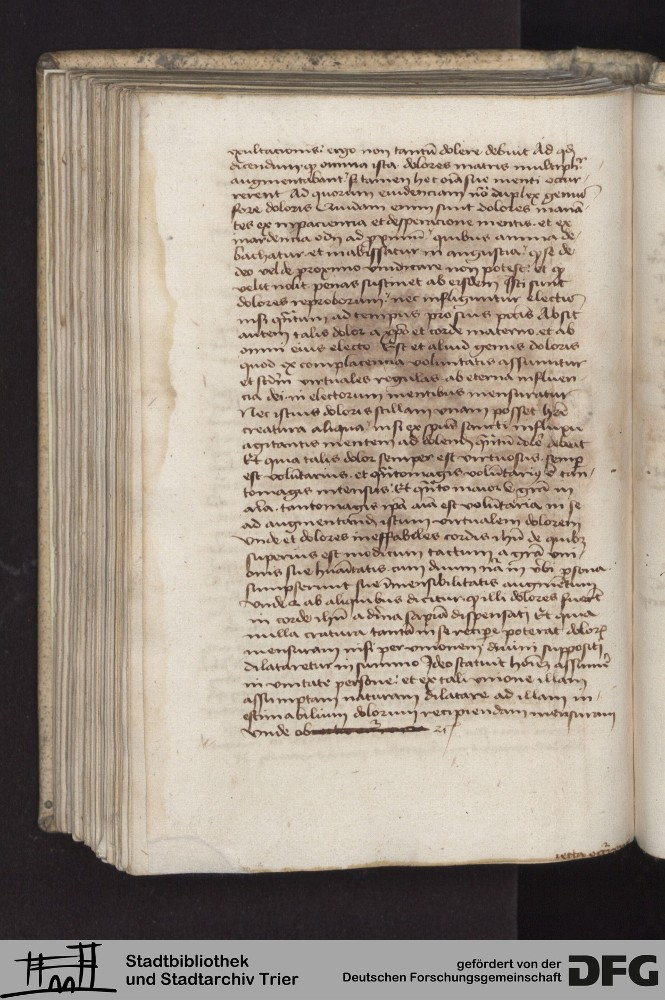 exultacionis: ergo non tantũ dolere debuit Ad qđ
dicendum ꝙ omnia ista dolores matris multiplr̃
augmentabant si tamen hec oĩa sue menti occur-
rerent Ad quorum euidenciam duplex genus
fore doloris Quidam enim sunt dolores mana-
tes ex inpaciencia et desperacione mentis. et ex
odij ad quibus anima de-
bachatur et inabissatur in angustia ꝙ se de
deo vel de proximo vindicare non potest: et ꝙ
velit nolit penas sustinet ab eisdem Isti sunt
dolores reproborum nec infliguntur electis
nisi ad tempus pro suis pctis Absit
autem talis dolor a xp̃o et corde materno. et ab
omni eius electo Est et aliud genus doloris
quod ex complacencia voluntatis assumitur
et scdm̃ virtuales regulas. ab eterna influen
cia dei in electorum mentibus mensuratur
Nec istius doloris stillam vnam posset hr̃e
creatura aliqua nisi ex spũs sancti influxu
agitantis mentem ad dolend debeat
Et quia talis dolor semper est virtuosus. semp
est volũtarius. et quãtomagis volũtariꝰ ẽ tan-
tomagis intensus Et quãto maior ẽ grã in
aĩa. tantomagis ip̃a aĩa est volũtaria in se
ad augmentand istum virtualem dolorem
Vnde et dolores ineffabiles cordis ihũ de quibꝫ
superius est modicum tactum a grã vni-
onis sue hũanitatis. cum diuin nã in v̄bi psona.
sumpserunt sue īmensibilitatis augmentum
Vnde ab aliquibus dicitur. ꝙ illi dolores fuer̃t
in corde ihũ a diĩna sapiẽa dispensati Et quia
nulla creatura tantã in se recipe poterat dolor
mensuram nisi per vnionem diuini suppositi
dilataretur in summo Ideo statuit hoĩem assume
in vnitate persone: et ex tali vnione illam
assumptam naturam dilatare ad illam in-
estimabilium dolorum recipiendam mensuram
Vnde ob
Stadtbibliothek
und Stadtarchiv Trier
gefördert von der
Deutschen Forschungsgemeinschaft
DFG